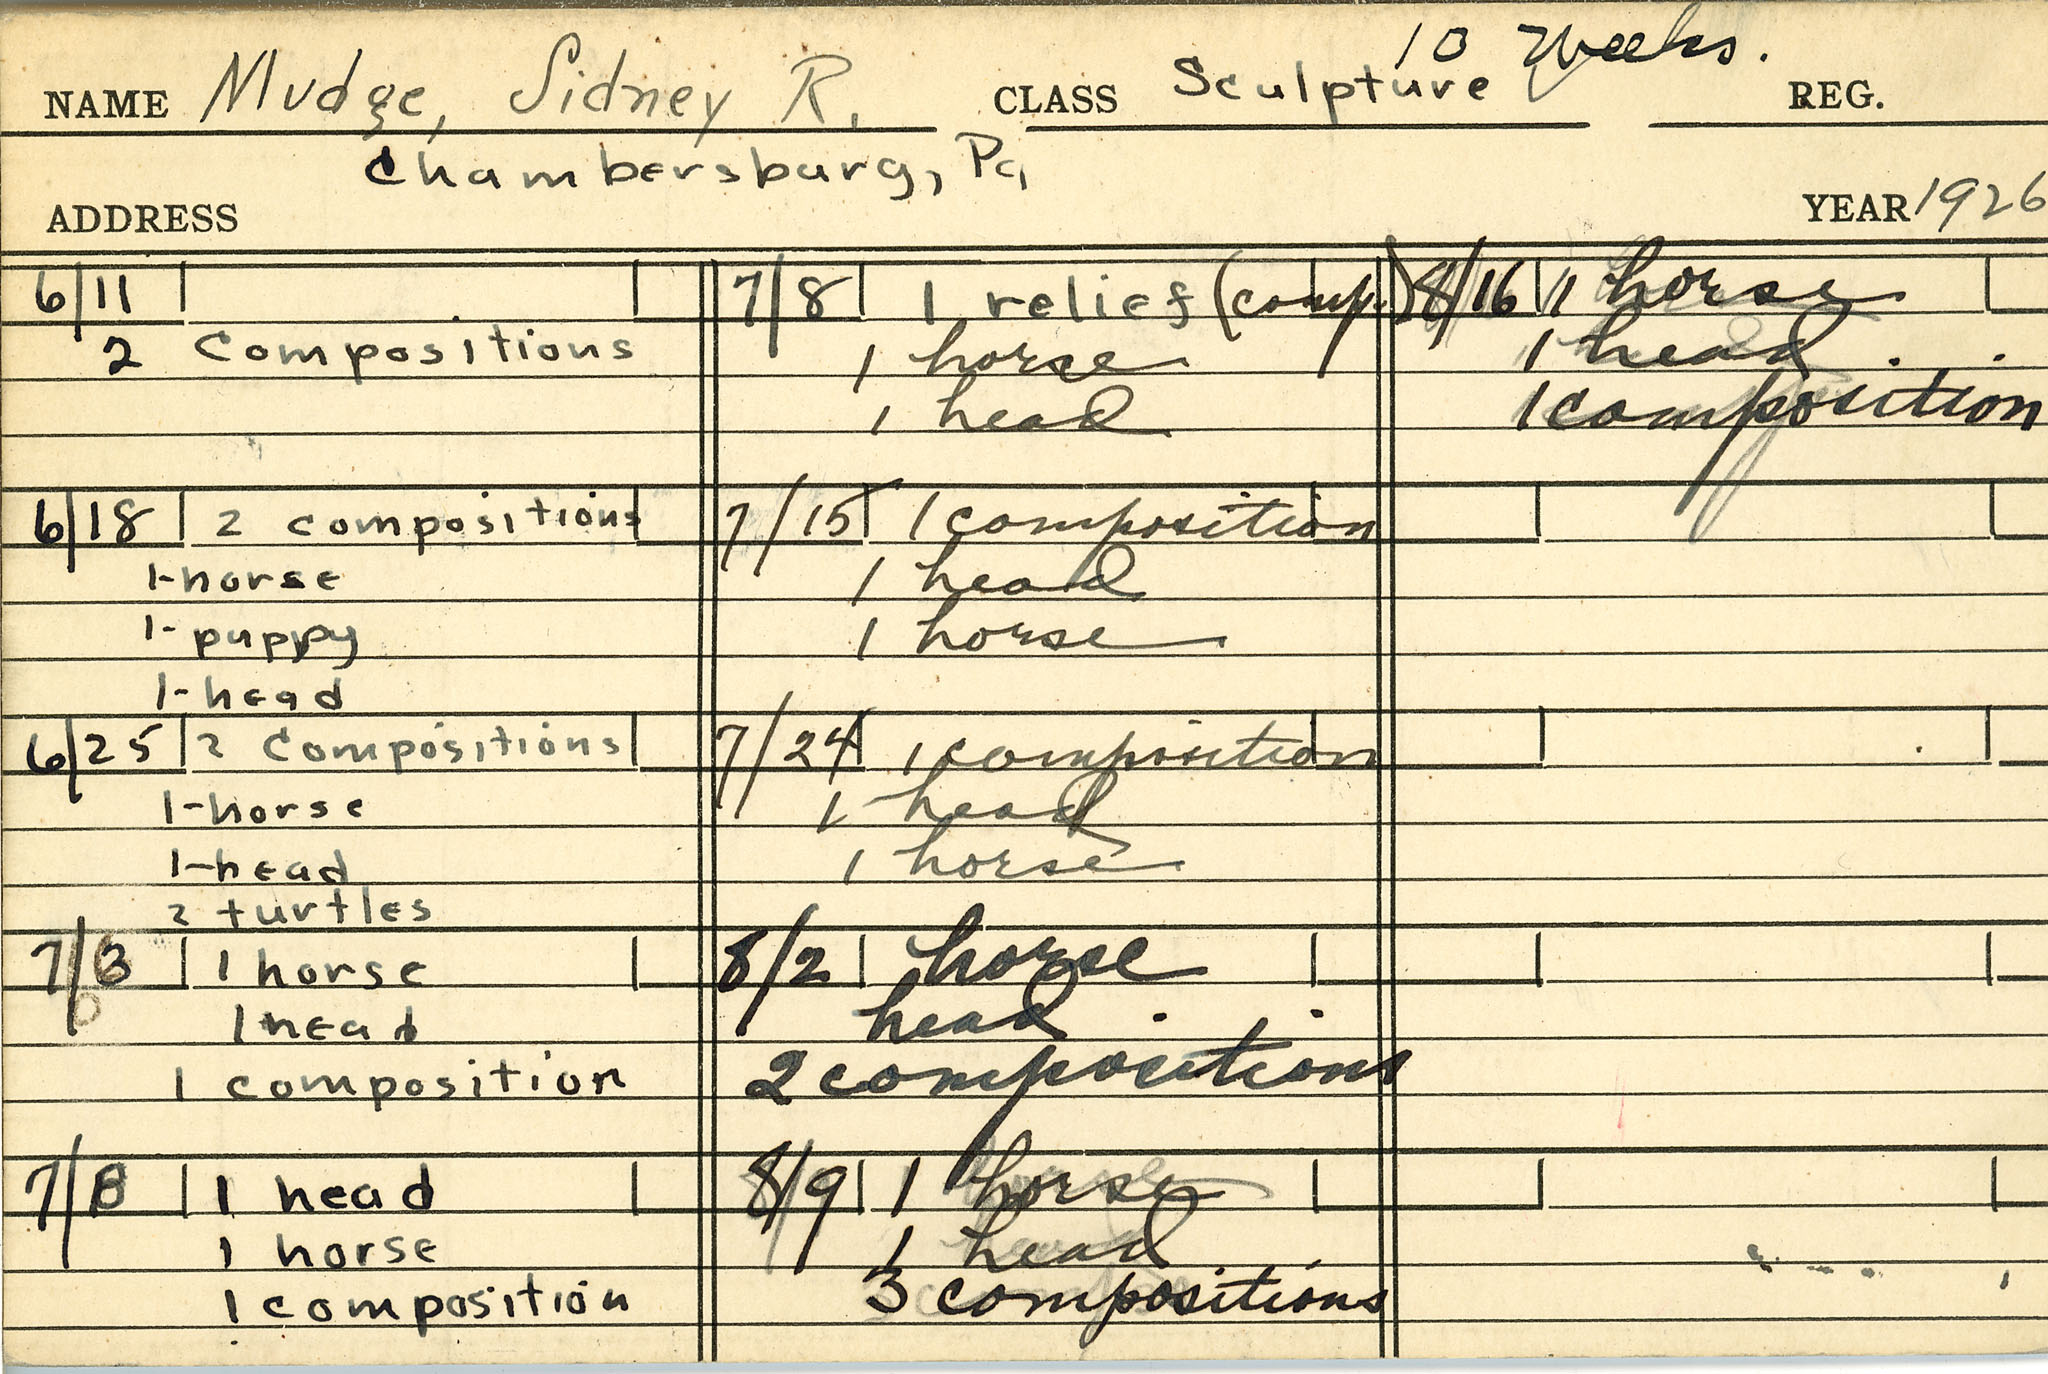 10 Weeks.
NAME Mudge, Sidney R. CLASS Sculpture REG.
Chambersburg, Pa.
ADDRESS YEAR 1926
6/11
2 Compositions
6/18 2 compositions
1-horse
1-puppy
1-head
6/25 2 Compositions
1-horse
1-head
2 turtles
7/3 1 horse
1 head
1 composition
7/8 1 head
1 horse
1 composition
7/8 1 relief (comp.)
1 horse
1 head
7/15 1 composition
1 head
1 horse
7/24 1 composition
1 head
1 horse
8/2 horse
head
2 compositions
8/9 1 horse
1 head
3 compositions
8/16 1 horse
1 head
1 composition